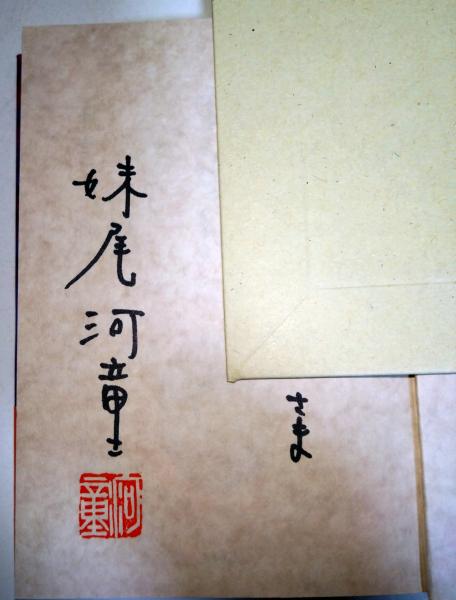 さま
妹尾河童
河童